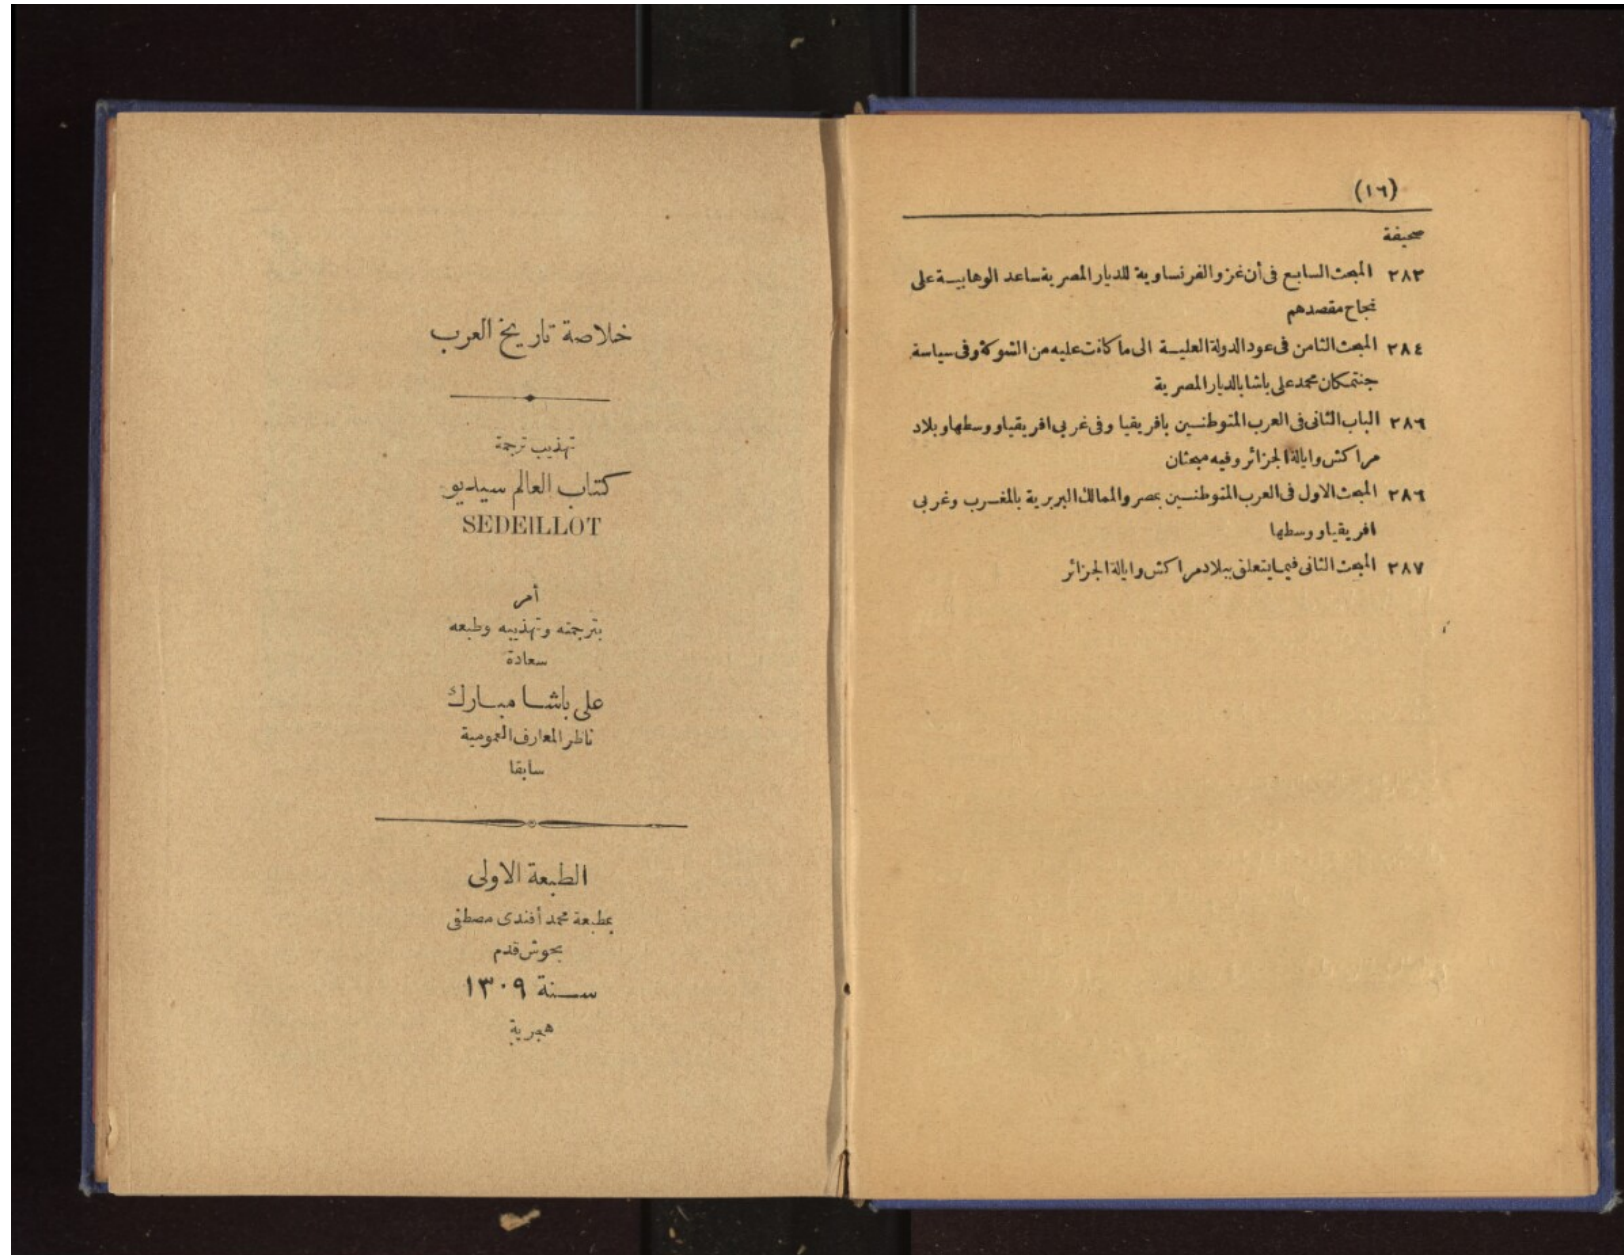 (١٦)
صحيفة
٢٨٣ المبحث السابع فى أن غزو الفرنساوية للديار المصرية ساعد الوهابيـة على
نجاح مقصدهم
٢٨٤ المبحث الثامن فى عود الدولة العليـة الى ما كانت عليه من الشوكة وفى سياسة
جنتمكان محمد على باشا بالديار المصرية
٢٨٦ الباب الثانى فى العرب المتوطنـسين بافريقيا وفى غربى افريقيا ووسطها وبلاد
مراكش وايالة الجزائر وفيه مبحثان
٢٨٦ المبحث الاول فى العرب المتوطنـين بمصر والممالك البربرية بالمغـرب وغربى
افريقيا ووسطها
٢٨٧ المبحث الثانى فيما يتعلق ببلاد مراكش وايالة الجزائر
خلاصة تاريخ العرب
تهذيب ترجمة
كتاب العالم سيديو
SEDEILLOT
أمر
بترجمته وتهذيبه وطبعه
سعادة
على باشـا مبـارك
ناظر المعارف العمومية
سابقا
الطبعة الاولى
بمطبعة محمد أفندى مصطفى
بحوش قدم
سـنة ١٣٠٩
هجرية